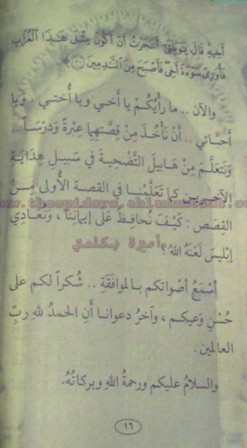 أَخِيهِ قَالَ يَوَيْلَتَىٰٓ أَعَجَزْتُ أَنْ أَكُونَ مِثْلَ هَٰذَا الْغُرَابِ
فَأُوَٰرِىَ سَوْءَةَ أَخِى فَأَصْبَحَ مِنَ النَّٰدِمِينَ
والآن .. ما رَأْيُكُمْ يا أَخي ويا أُختي ، ويا
أَحِبَّائي .. أَنْ نَأْخُذَ مِنْ قِصَّتِهِمَا عِبْرَةً وَدَرْسَاً ..
وَنَتَعَلَّمَ مِنْ هَابِيلَ التَّضْحِيَةَ في سَبِيلِ هِدَايَةِ
الآخَرِينَ كَمَا تَعَلَّمْنَا في القصة الأُولى مِنَ
القَصَصِ : كَيْفَ نُحَافِظُ عَلَى إِيمَانِنَا ، وَنُعَادِي
إبْليسَ لَعَنَهُ اللهُ ؟
أَسْمَعُ أَصْوَاتَكُم بالمُوَافَقَةِ .. شُكراً لكم على
حُسْنِ وَعْيِكم ، وآخرُ دعوانا أَنِ الحمدُ للهِ ربِّ
العالمين .
والسلامُ عليكم ورحمةُ اللهِ وبركاتُهُ.
١٦